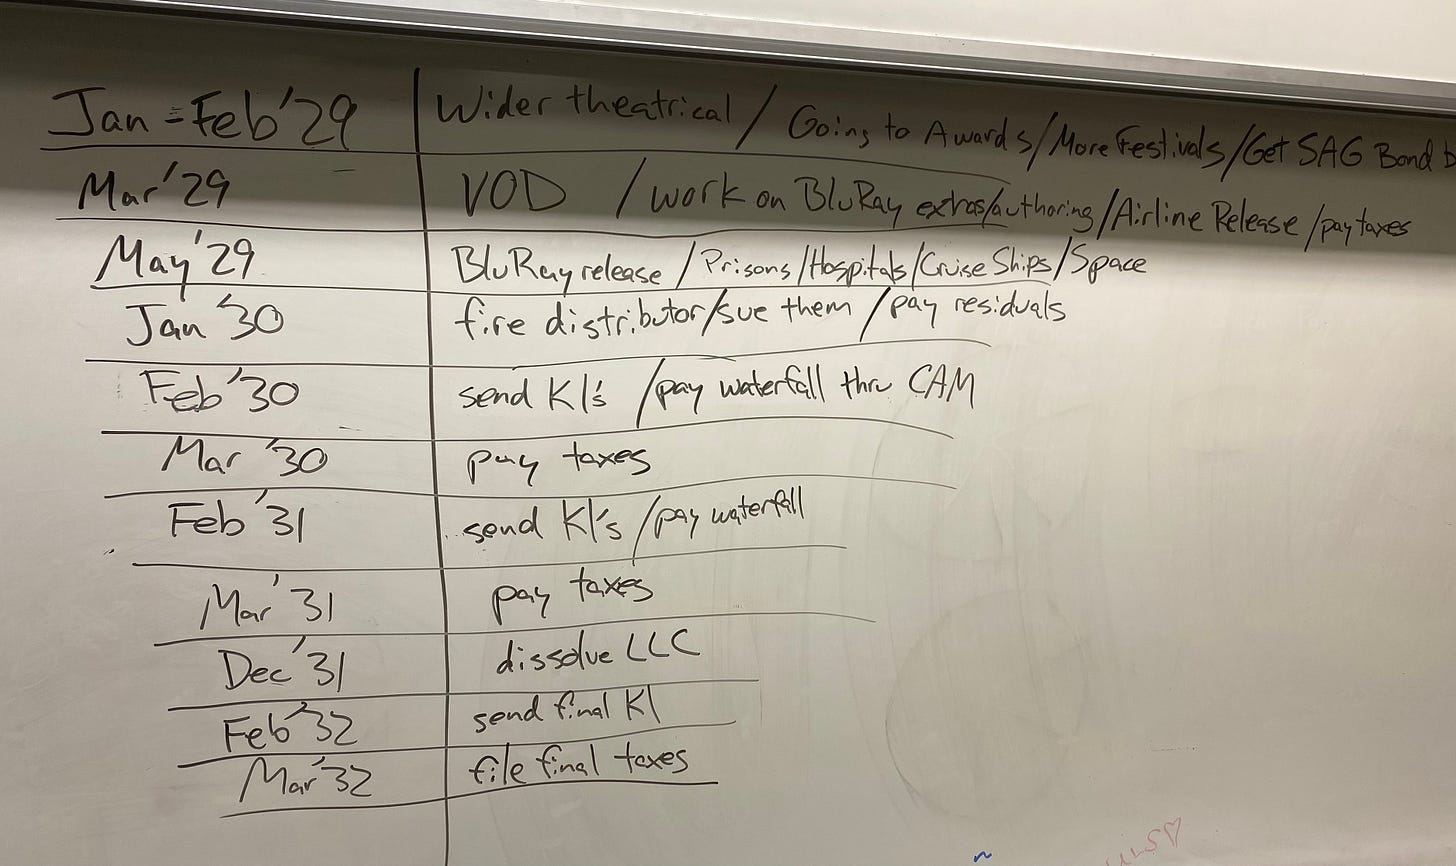 Jan - Feb '29 Wider theatrical / Going to Awards / More Festivals / Get SAG Bond b
Mar '29 VOD / work on BluRay extras/authoring / Airline Release / pay taxes
May '29 BluRay release / Prisons / Hospitals / Cruise Ships / Space
Jan '30 fire distributor / sue them / pay residuals
Feb '30 send K1's / pay waterfall thru CAM
Mar '30 pay taxes
Feb '31 send K1's / pay waterfall
Mar '31 pay taxes
Dec '31 dissolve LLC
Feb '32 send final K1
Mar '32 file final taxes